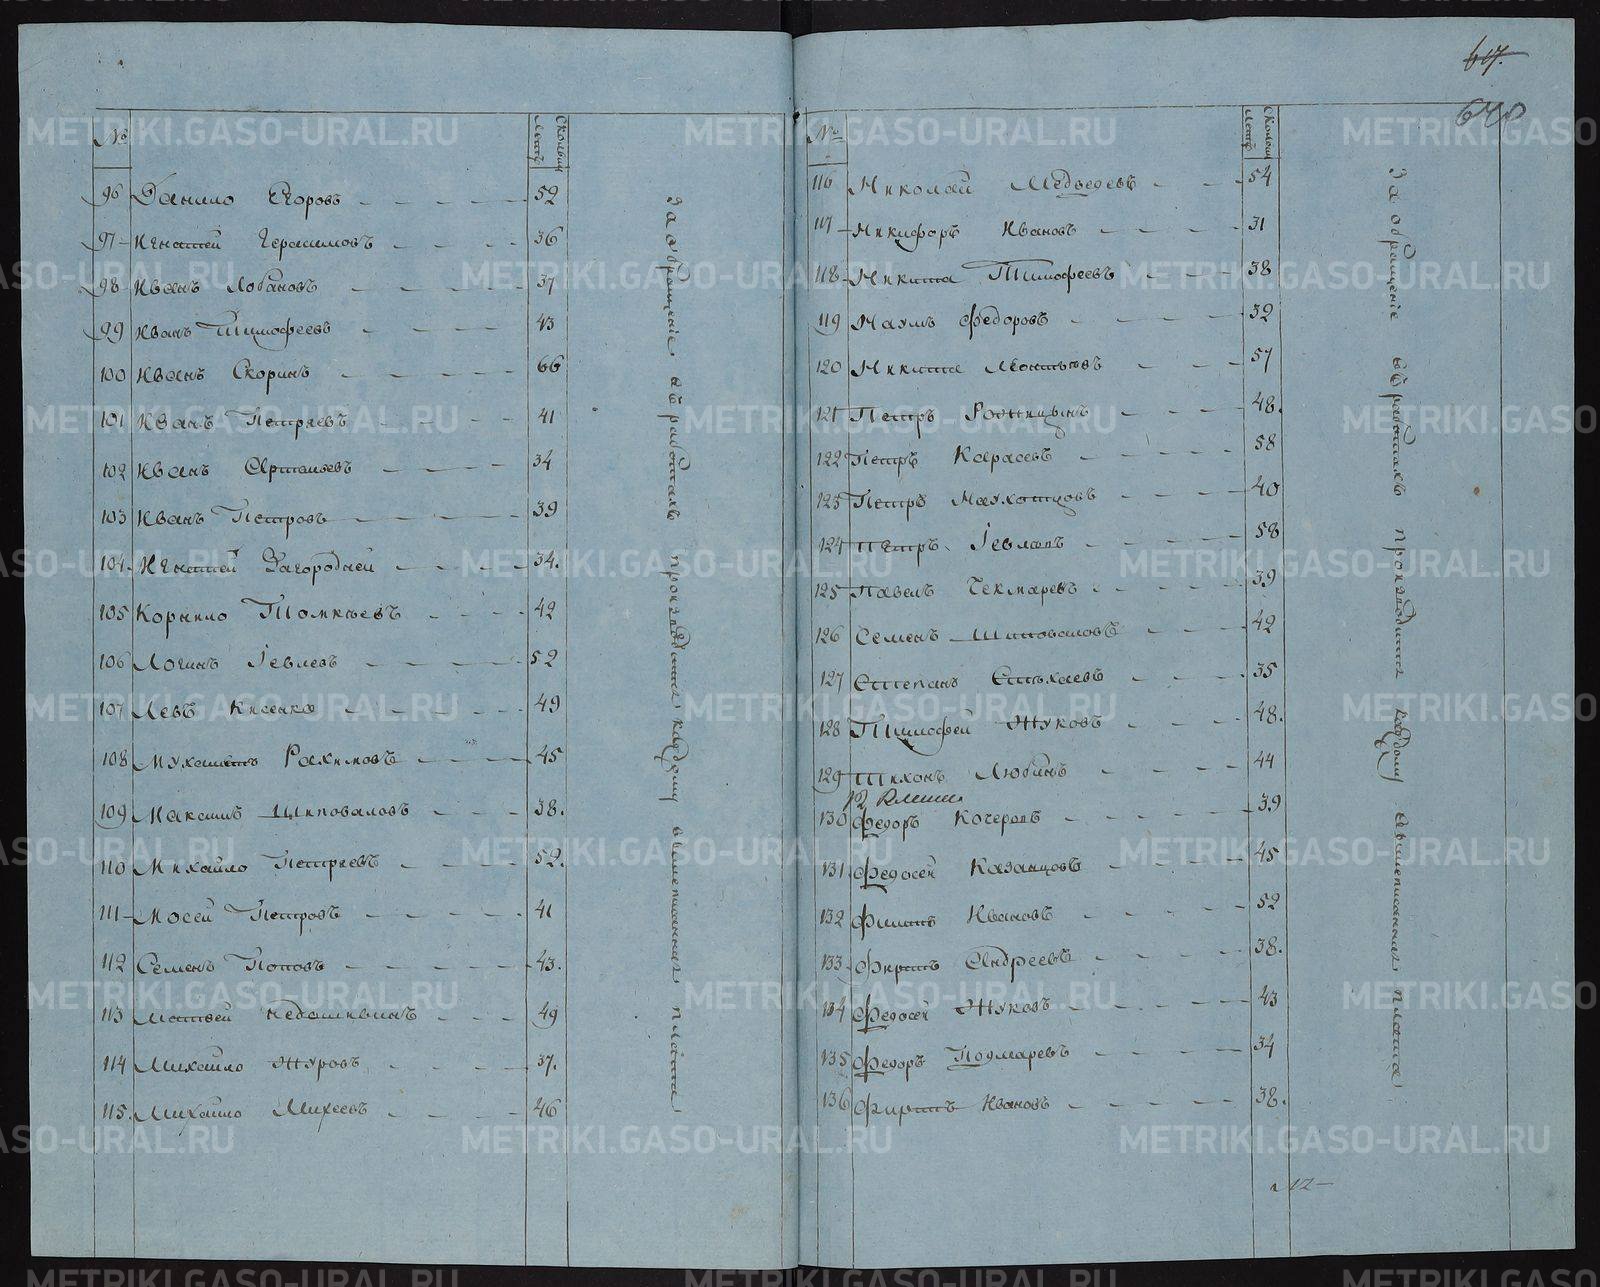 № Сколькихъ Летъ
96 Данило Егоровъ 52
97 Игнатей Герасимовъ 36
98 Иванъ Лобановъ 37
99 Иванъ Тимофеевъ 43
100 Иванъ Скоринъ 66
101 Иванъ Петряевъ 41
102 Иванъ Артемьевъ 34
103 Иванъ Петровъ 39
104 Игнатей Загородней 34.
105 Корнило 42
106 Логинъ Іевлевъ 52
107 Левъ Кисенко 49
108 Рахимовъ 45
109 Максимъ Шиповаловъ 38.
110 Михайло Петряевъ 52.
111 Мосей Петровъ 41
112 Семенъ Поповъ 43.
113 Матвей 49
114 Михайло Журовъ 37.
115. Михайло Михеевъ 46
За обращеніе въ работахъ каждому вышеписанная плата
67.
№ Сколькихъ Летъ
116 Николай Медведевъ 54
117 Никифоръ Ивановъ 31
118 Никита Тимофеевъ 38
119 Наумъ Федоровъ 32
120 Никита Леонтьевъ 57
121 Петръ 48.
122 Петръ Карасевъ 58
123 Петръ 40
124 Петръ Іевлевъ 58
125 Павелъ Чекмаревъ 39
126 Семенъ Шиповаловъ 42
127 Степанъ 35
128 Тимофей Жуковъ 48.
129 Тихонъ Любинъ 44
130 Федоръ Кочеровъ 39
131 Федосей Казанцовъ 45
132 Ивановъ 52
133 Фирсъ Андреевъ 38.
134 Федосей Жуковъ 43
135 Федоръ 34
136 Ивановъ 38.
За обращеніе въ работахъ каждому вышеписанная плата
METRIKI.GASO-URAL.RU